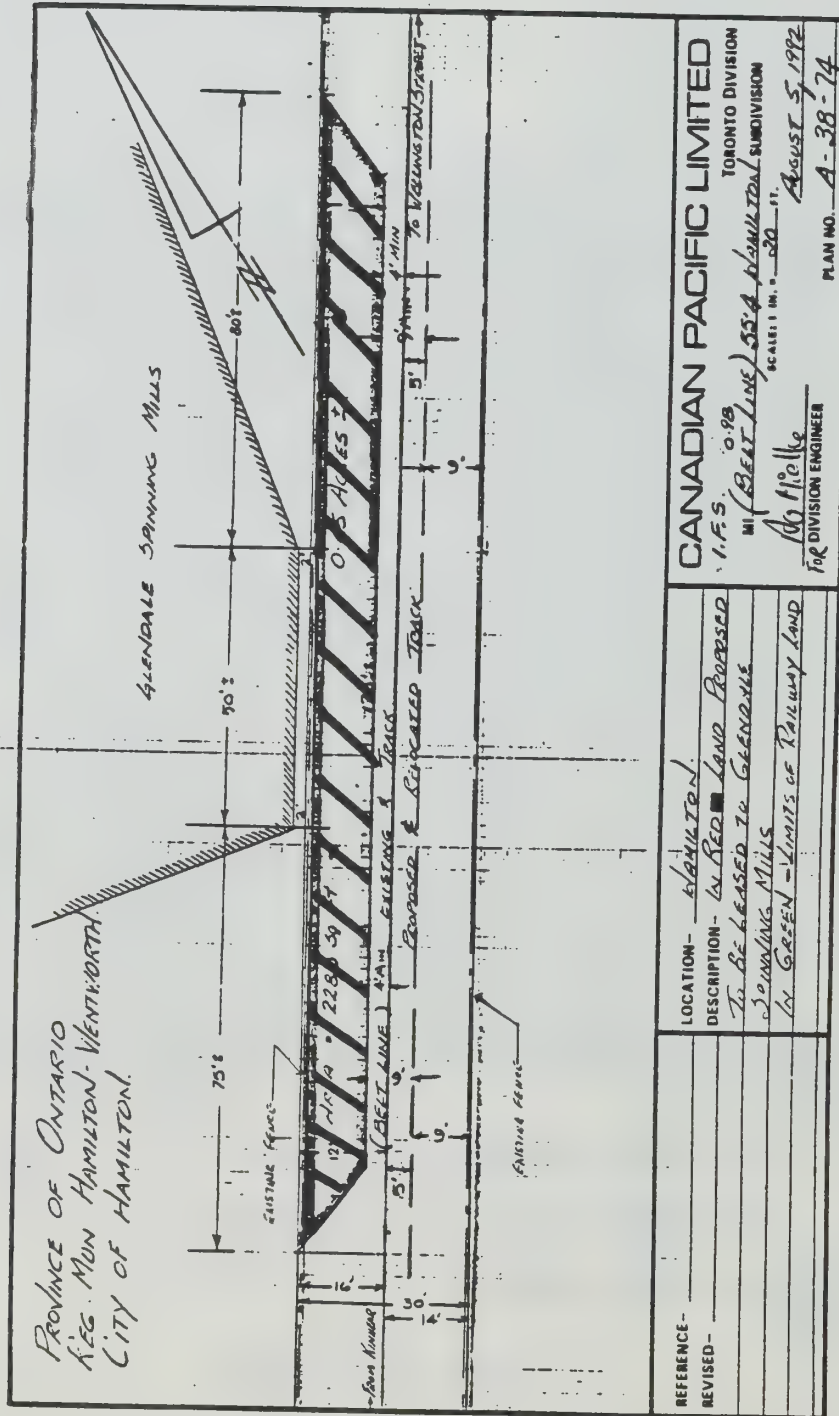 PROVINCE OF ONTARIO
REG. MUN HAMILTON-WENTWORTH
CITY OF HAMILTON.
GLENDALE SPINNING MILLS
75'±
50'±
80'±
2'
2'
EXISTING FENCE
12'
AREA = 228 SQ FT
0. 5 ACRES ±
(BELT LINE) MAIN EXISTING ℄ TRACK
PROPOSED ℄ RELOCATED TRACK
4' MIN
9' MIN.
TO WELLINGTON STREET
5'
9'
9'
9'
5'
16'
30'
14'
FROM KINNEAR
EXISTING FENCE
REFERENCE-
REVISED-
LOCATION- HAMILTON.
DESCRIPTION- IN RED LAND PROPOSED
TO BE LEASED TO GLENDALE
SPINNING MILLS
IN GREEN - LIMITS OF RAILWAY LAND
CANADIAN PACIFIC LIMITED
I.F.S.
TORONTO DIVISION
MI. 0.98 (BELT LINE) 55.4 HAMILTON SUBDIVISION
SCALE: 1 IN. = 20 FT.
AUGUST 5, 1992
FOR DIVISION ENGINEER
PLAN NO. A-38-74